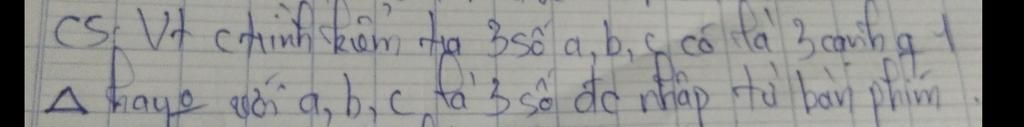 C5: Vt ctrình kiểm tra 3 số a, b, c có là 3 cạnh g 1
Δ hay o với a, b, c là 3 số đc nhập từ bàn phím.